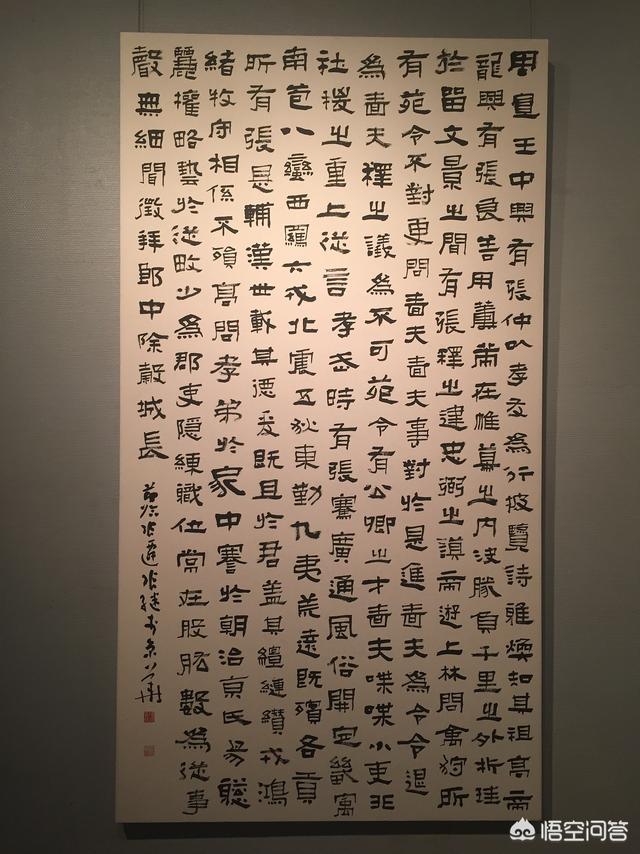 周宣王中興有張仲以孝友為行披覽詩雅煥知其祖高帝
龍興有張良善用籌策在帷幕之內決勝負千里之外析珪
於留文景之間有張釋之建忠弼之謨帝遊上林問禽狩所
有苑令不對更問嗇夫嗇夫事對於是進嗇夫為令令退
為嗇夫釋之議為不可苑令有公卿之才嗇夫喋喋小吏非
社稷之重上從言孝武時有張騫廣通風俗開定畿寓
南苞八蠻西羈六戎北震五狄東勤九夷荒遠既殯各貢
所有張是輔漢世載其德爰既且於君蓋其繵縺纘戎鴻
緒牧守相係不殞高問孝弟於家中謇於朝治京氏易聰
麗權略藝於從畋少為郡吏隱練職位常在股肱數為從事
聲無細聞徵拜郎中除穀城長
節臨張遷張継書京華
悟空问答